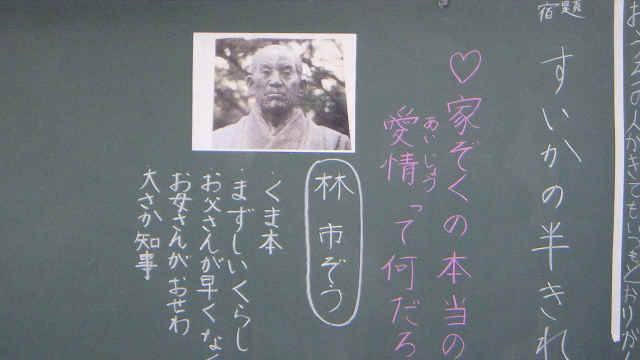 宿題
すいかの半きれ
♡家ぞくの本当の
愛情って何だろ
あいじょう
林市ぞう
・くま本
・まずしいくらし
お父さんが早くなく
お母さんがおせわ
・大さか知事